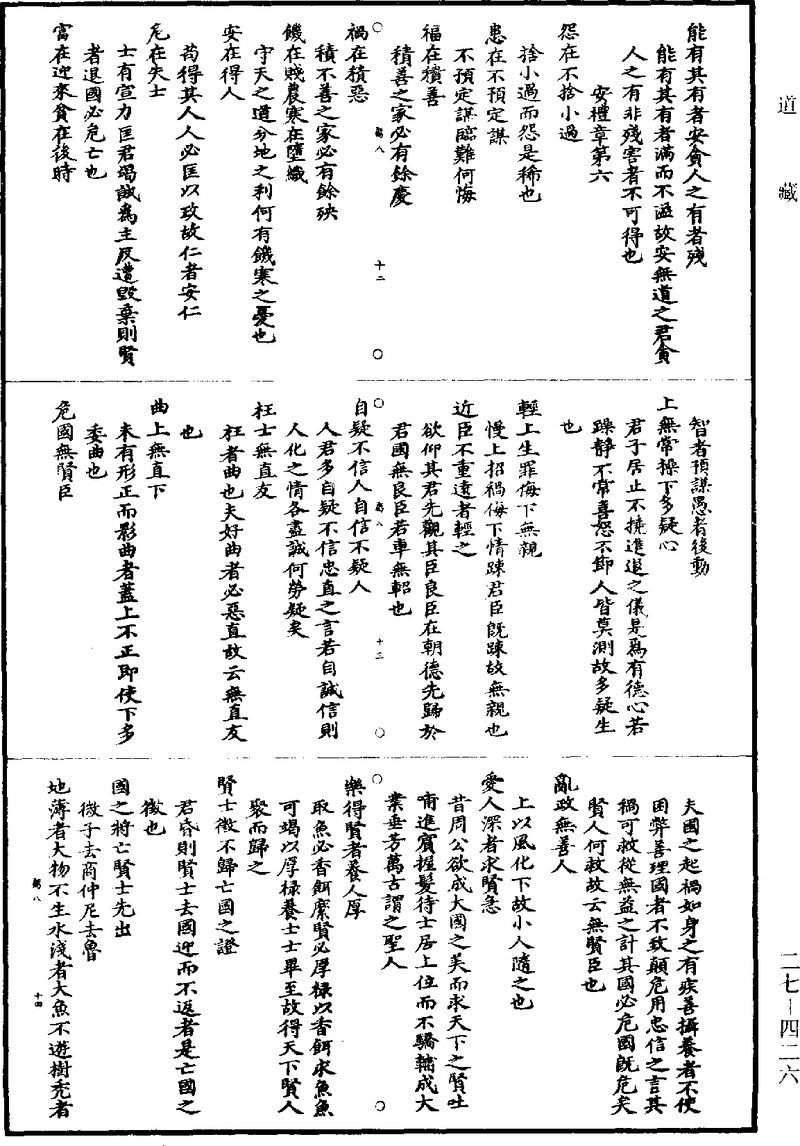 道藏
能有其有者安貪人之有者殘
能有其有者滿而不溢故安無道之君貪
人之有非殘害者不可得也
安禮章第六
怨在不捨小過
捨小過而怨是稀也
患在不預定謀
不預定謀臨難何悔
福在積善
積善之家必有餘慶
八
十二
禍在積惡
積不善之家必有餘殃
饑在賤農寒在墮織
守天之道分地之利何有饑寒之憂也
安在得人
苟得其人人必匡以政故仁者安仁
危在失士
士有宣力匡君竭誠為主反遭毀棄則賢
者退國必危亡也
富在迎來貪在後時
智者預謀愚者後動
上無常操下多疑心
君子居止不撓進退之儀是爲有德心若
躁靜不常喜怒不節人皆莫測故多疑生
也
輕上生罪侮下無親
慢上招禍侮下情踈君臣既踈故無親也
近臣不重遠者輕之
欲仰其君先觀其臣良臣在朝德先歸於
君國無良臣若車無軺也
八
十三
自疑不信人自信不疑人
人君多自疑不信忠直之言若自誠信則
人化之情各盡誠何勞疑矣
枉士無直友
枉者曲也夫好曲者必惡直故云無直友
也
曲上無直下
未有形正而影曲者蓋上不正即使下多
委曲也
危國無賢臣
夫國之起禍如身之有疾善攝養者不使
困弊善理國者不致顛危用忠信之言其
禍可救從無益之計其國必危國既危矣
賢人何救故云無賢臣也
亂政無善人
上以風化下故小人隨之也
愛人深者求賢急
昔周公欲成大國之美而求天下之賢吐
哺進賓握髮待士居上位而不驕輔成大
業垂芳萬古謂之聖人
樂得賢者養人厚
取魚必香餌縻賢必厚祿以香餌求魚魚
可竭以厚祿養士士畢至故得天下賢人
聚而歸之
賢士徵不歸亡國之證
君昏則賢士去國迎而不返者是亡國之
徵也
國之將亡賢士先出
微子去商仲尼去魯
地薄者大物不生水淺者大魚不遊樹禿者
八
十四
二七—四二六